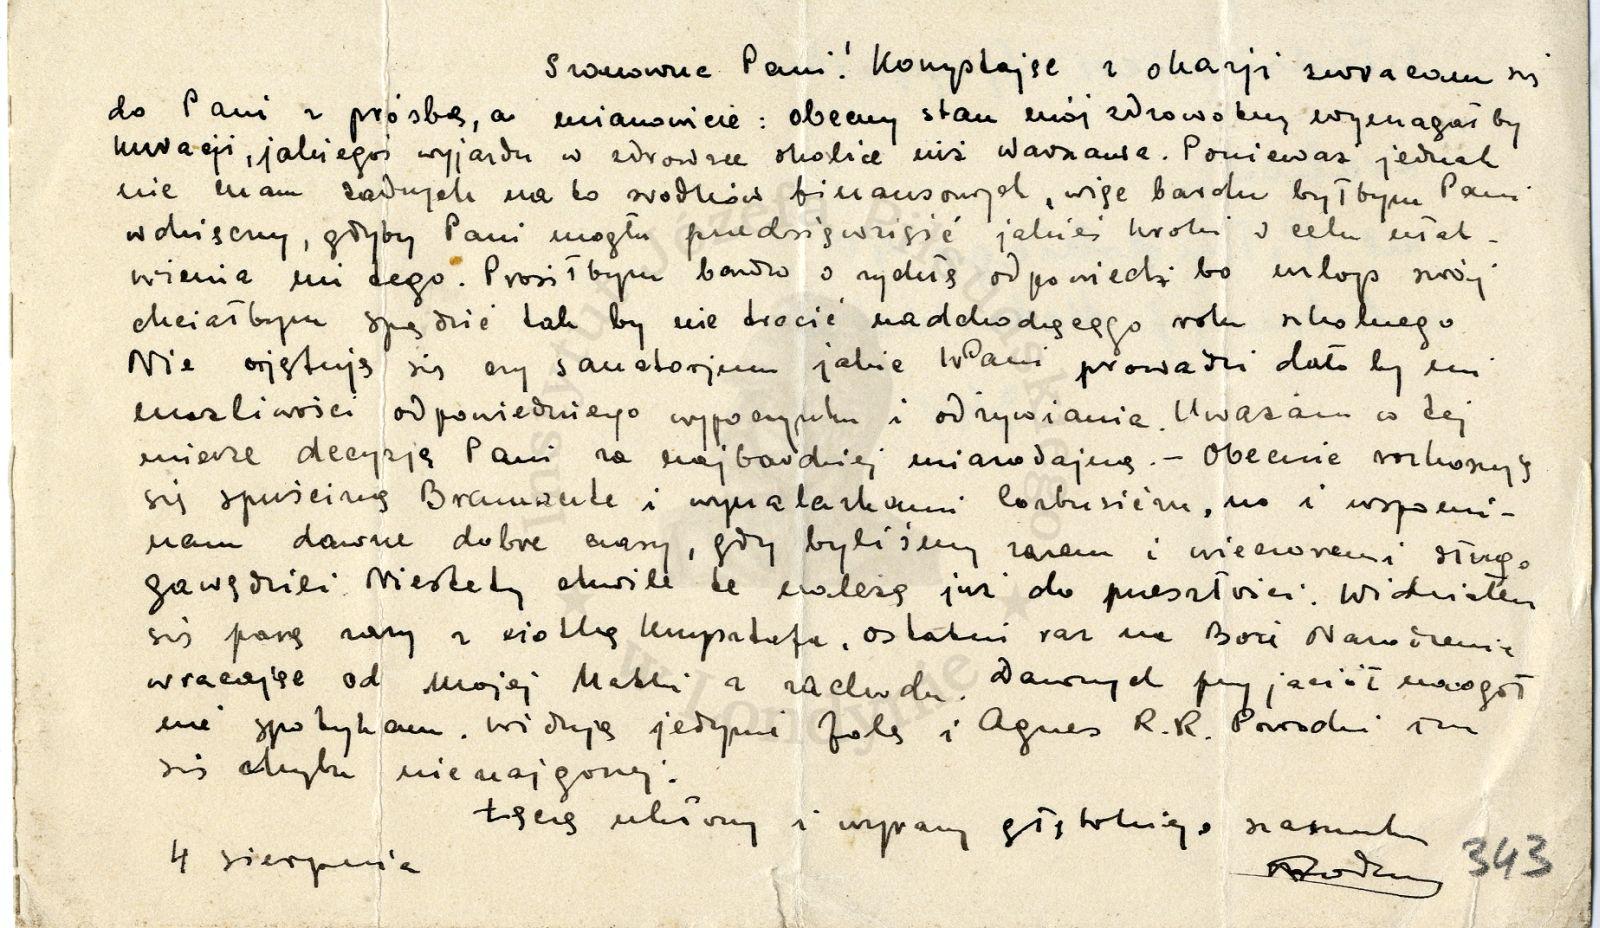 Szanowna Pani! Korzystając z okazji zwracam się
do Pani z prośbą, a mianowicie: obecny stan mój zdrowotny wymagałby
kuracji, jakiegoś wyjazdu w zdrowsze okolice niż Warszawa. Ponieważ jednak
nie mam żadnych na to środków finansowych, więc bardzo byłbym Pani
wdzięczny, gdyby Pani mogła przedsięwziąść jakieś kroki w celu ułat-
wienia mi tego. Prosiłbym bardzo o rychłą odpowiedź bo urlop swój
chciałbym spędzić tak by nie tracić nadchodzącego roku szkolnego
Nie orjętuję się czy sanatorjum jakie WPani prowadzi dało by mi
możliwości odpowiedniego wypoczynku i odżywiania. Uważam w tej
mierze decyzję Pani za najbardziej miarodajną. – Obecnie rozkoszuję
się spuścizną Bramante i wynalazkami Corbusièra, no i wspomi-
nam dawne dobre czasy, gdy byliśmy razem i wieczorami długo
gawędzili. Niestety chwile te należą już do przeszłości. Widziałem
się parę razy z ciotką Krzysztofa, ostatni raz na Boże Narodzenie
wracając od mojej Matki z zachodu. Dawnych przyjaciół naogół
nie spotykam. Widuję jedynie Jolę i Agnes R.R. Powodzi im
się chyba nienajgorzej.
Łączę ukłony i wyrazy głębokiego szacunku
4 sierpnia
343
Instytut Józefa Piłsudskiego
w Londynie